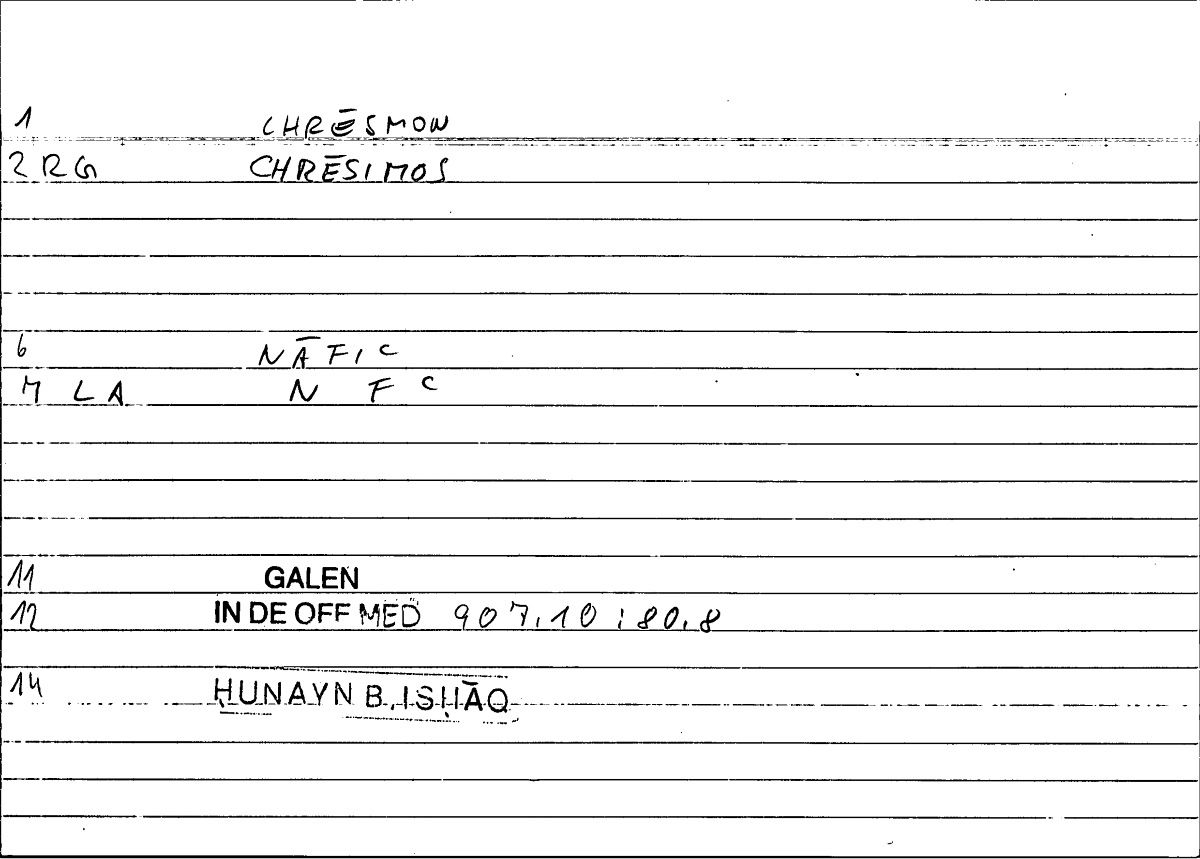 1 CHRĒSMON
2 RG CHRĒSIMOS
6 NĀFIC
7 LA N F C
11 GALEN
12 IN DE OFF MED 907.10:80.8
14 ḤUNAYN B. ISḤĀQ